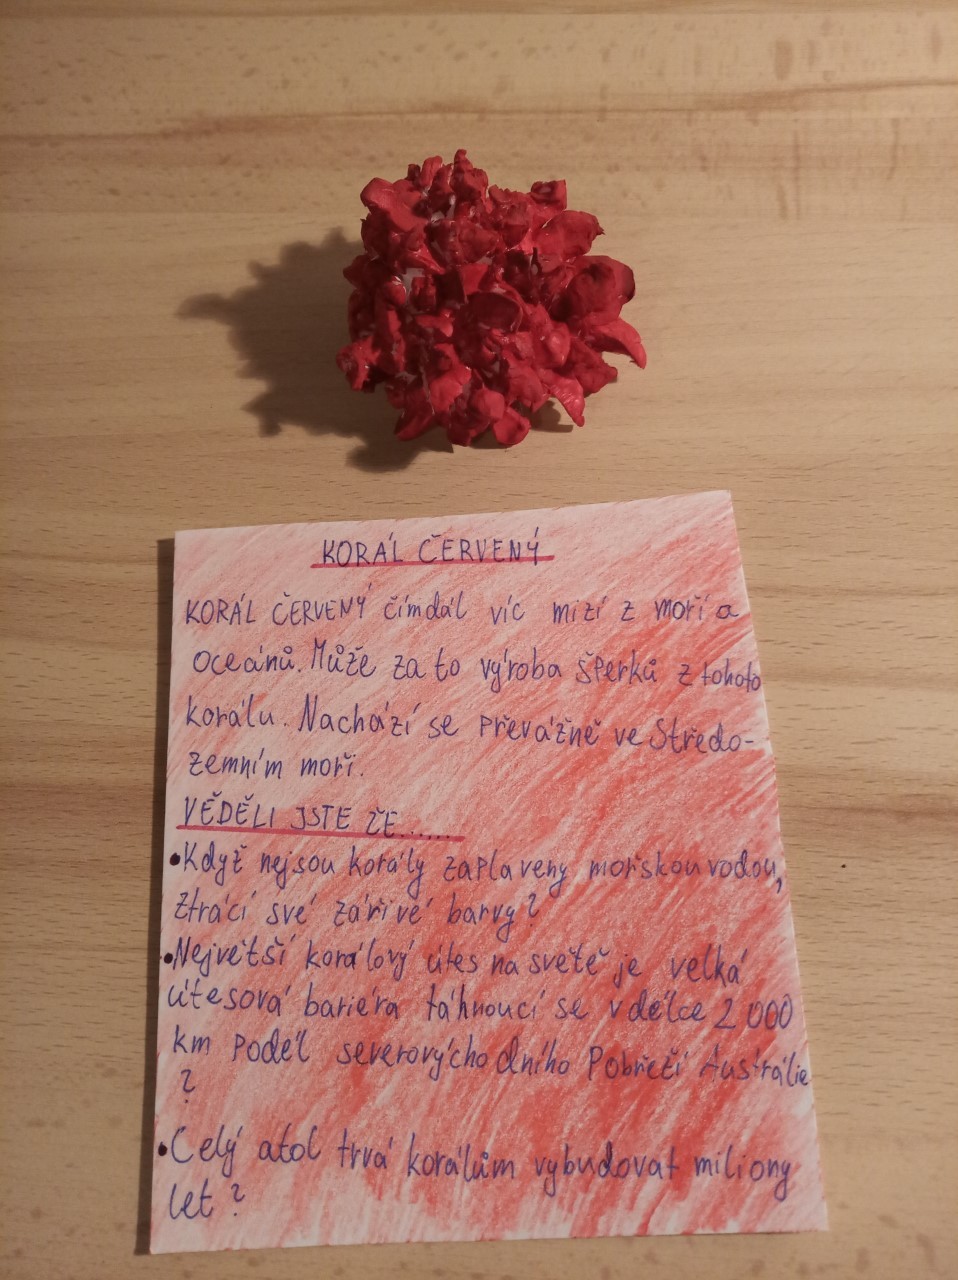 KORÁL ČERVENÝ
KORÁL ČERVENÝ čímdál víc mizí z moří a
oceánů. Může za to výroba šperků z tohoto
korálu. Nachází se převážně ve Středo-
zemním moři.
VĚDĚLI JSTE ŽE......
•Když nejsou korály zaplaveny mořskou vodou,
ztrácí své zářivé barvy?
•Největší korálový útes na světě je velká
útesová bariéra táhnoucí se v délce 2 000
km podél severovýchodního pobřeží Austrálie
?
•Celý atol trvá korálům vybudovat miliony
let?